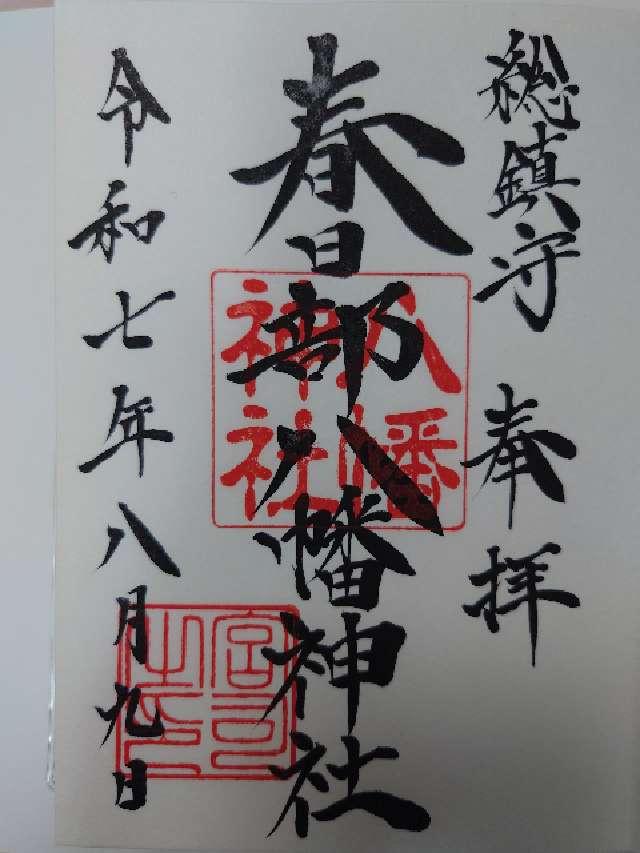 総鎮守 奉拝
春日部八幡神社
八幡
神社
令和七年八月九日
宮司
之印